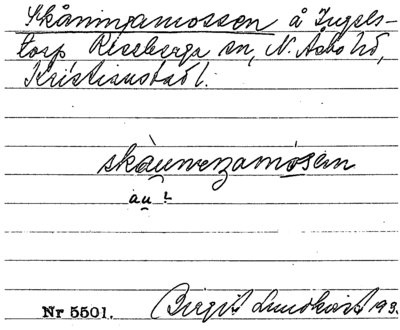 Skåningamossen å Ingels-
torp Riseberga sn, N. Åsbo hd,
Kristianstad l.
skàunenzamósen
au ?
Nr 5501. Birgit Lundkvist 193